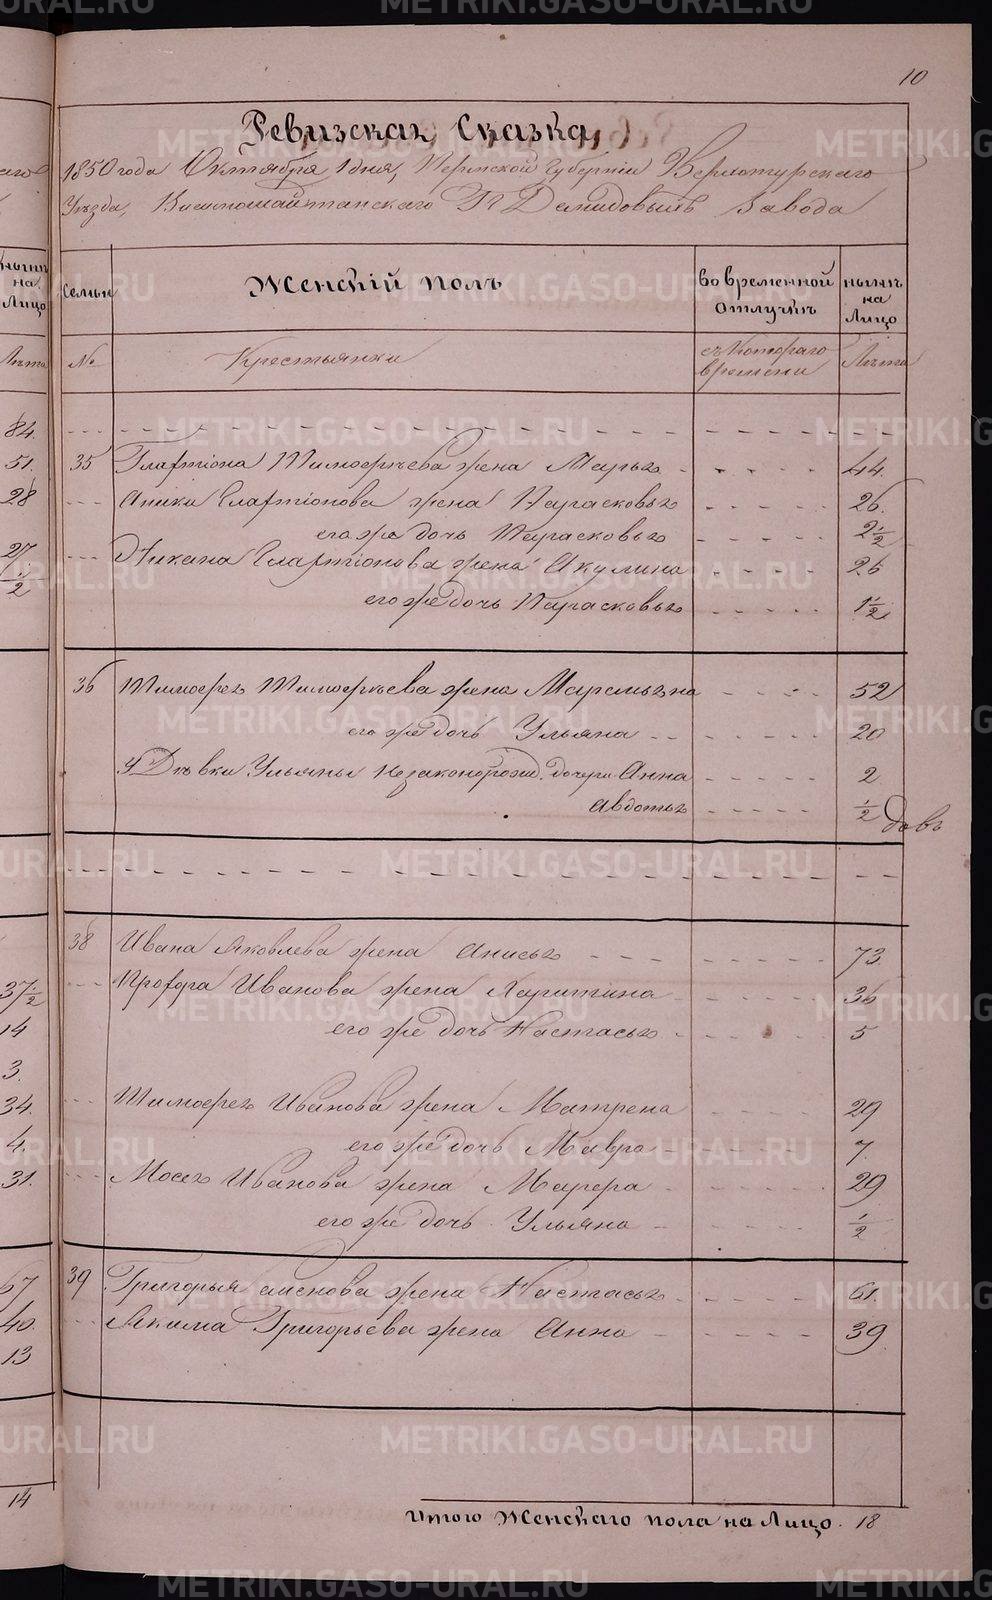 10
Ревизская Сказка
1850 года Октября 1 дня, Пермской Губернiи Верхотурскаго
Уѣзда, Висимошайтанскаго Гг Демидовыхъ Завода
Семьи
Женскiй полъ
во временной отлучкѣ
нынѣ на Лицо
№
Крестьянки
съ котораго времени
Лѣта
35 Галактiона Тимофѣева жена Марья 44.
Аники Галактiонова жена Парасковья 26.
его же дочь Парасковья 2 1/2
Галактiонова жена Акулина 26
его же дочь Парасковья 1 1/2
36 Тимофея Тимофѣева жена Маремьяна 52
его же дочь Ульяна 20
У Дѣвки Ульяны незаконорожд. дочери Анна 2
Авдотья 1/2
38 Ивана Яковлева жена Анисья 73
Прохора Иванова жена Харитина 36
его же дочь Настасья 5
Тимофея Иванова жена Матрена 29
его же дочь Мавра 7.
Мосея Иванова жена Марфа 29
его же дочь Ульяна 1/2
39 Григорья Семенова жена Настасья 61.
Якима Григорьева жена Анна 39
Итого Женскаго пола на Лицо. 18
нынѣ на Лицо
Лѣта
84.
51.
28
27 1/2
37 1/2
14
3.
34.
4.
31.
67
40.
13
14
METRIKI.GASO-URAL.RU